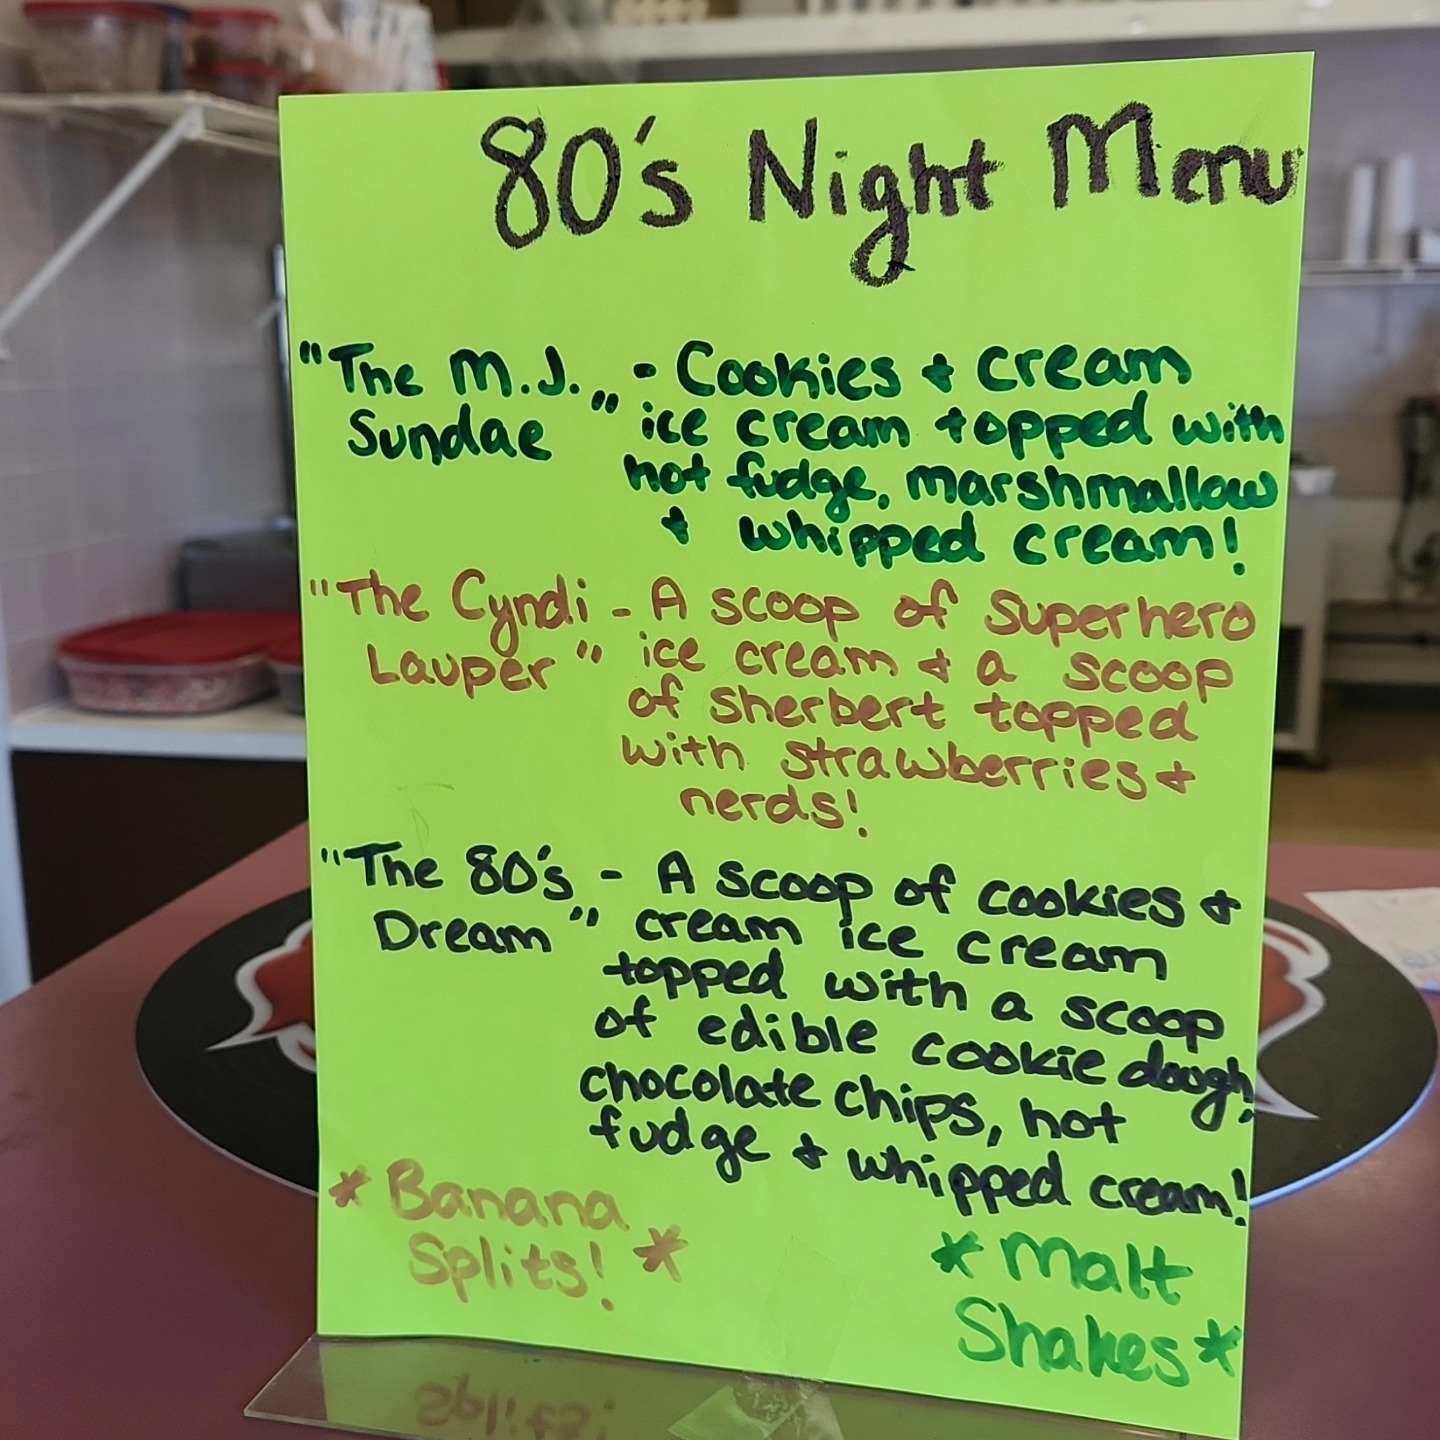 80's Night Menu
"The M.J. - Cookies + cream
Sundae" ice cream topped with
hot fudge, marshmallow
+ whipped cream!
"The Cyndi - A scoop of Superhero
Lauper" ice cream + a scoop
of sherbert topped
with strawberries +
nerds!
"The 80's - A scoop of cookies +
Dream" cream ice cream
topped with a scoop
of edible cookie dough,
chocolate chips, hot
fudge + whipped cream!
* Banana
Splits! *
* Malt
Shakes *